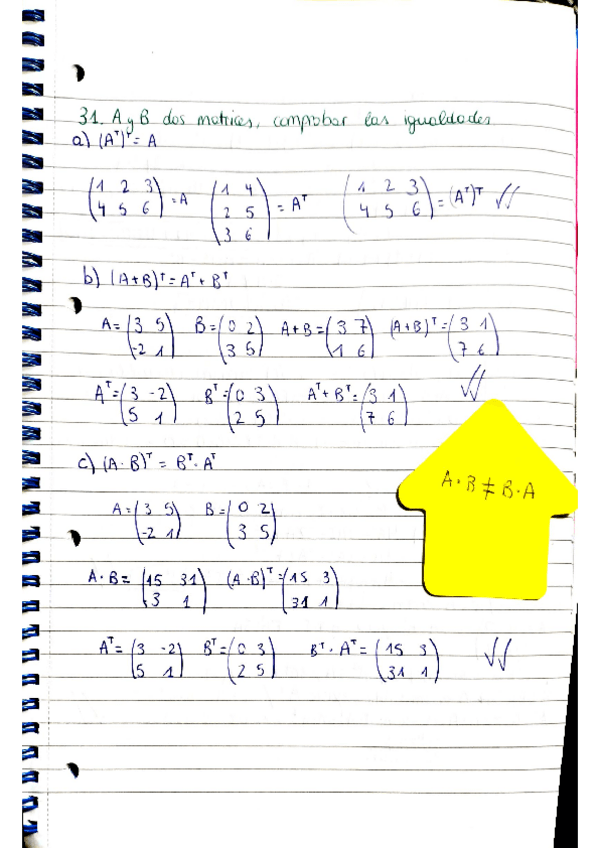 31. A y B dos matrices, comprobar las igualdades
a) (Aᵀ)ᵀ = A
(1 2 3 / 4 5 6) = A (1 4 / 2 5 / 3 6) = Aᵀ (1 2 3 / 4 5 6) = (Aᵀ)ᵀ ✓✓
b) (A+B)ᵀ = Aᵀ + Bᵀ
A = (3 5 / -2 1) B = (0 2 / 3 5) A+B = (3 7 / 1 6) (A+B)ᵀ = (3 1 / 7 6)
Aᵀ = (3 -2 / 5 1) Bᵀ = (0 3 / 2 5) Aᵀ + Bᵀ = (3 1 / 7 6) ✓✓
c) (A·B)ᵀ = Bᵀ·Aᵀ
A·B ≠ B·A
A = (3 5 / -2 1) B = (0 2 / 3 5)
A·B = (15 31 / 3 1) (A·B)ᵀ = (15 3 / 31 1)
Aᵀ = (3 -2 / 5 1) Bᵀ = (0 3 / 2 5) Bᵀ·Aᵀ = (15 3 / 31 1) ✓✓